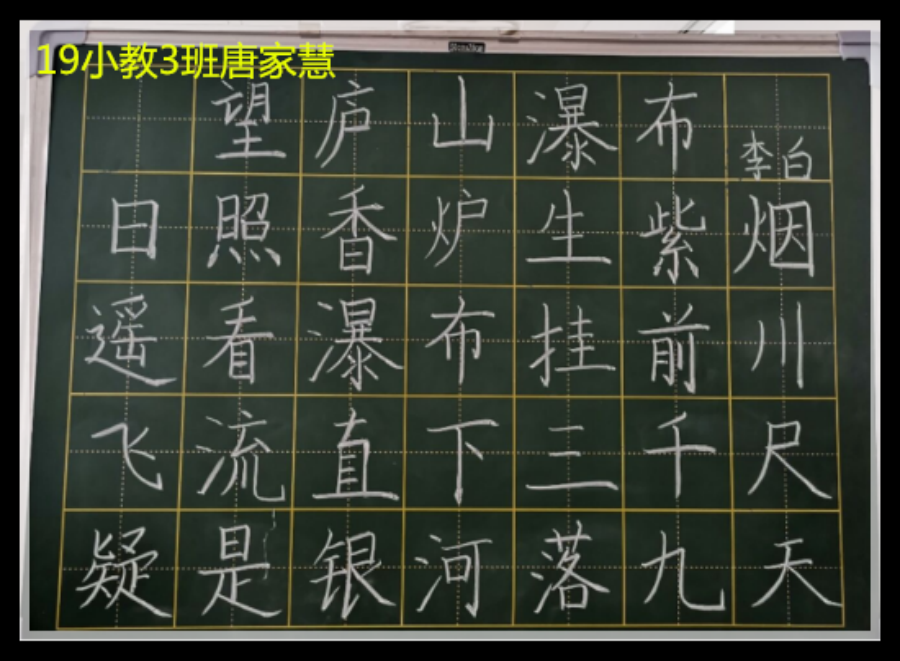 19小教3班唐家慧
望庐山瀑布
李白
日照香炉生紫烟
遥看瀑布挂前川
飞流直下三千尺
疑是银河落九天